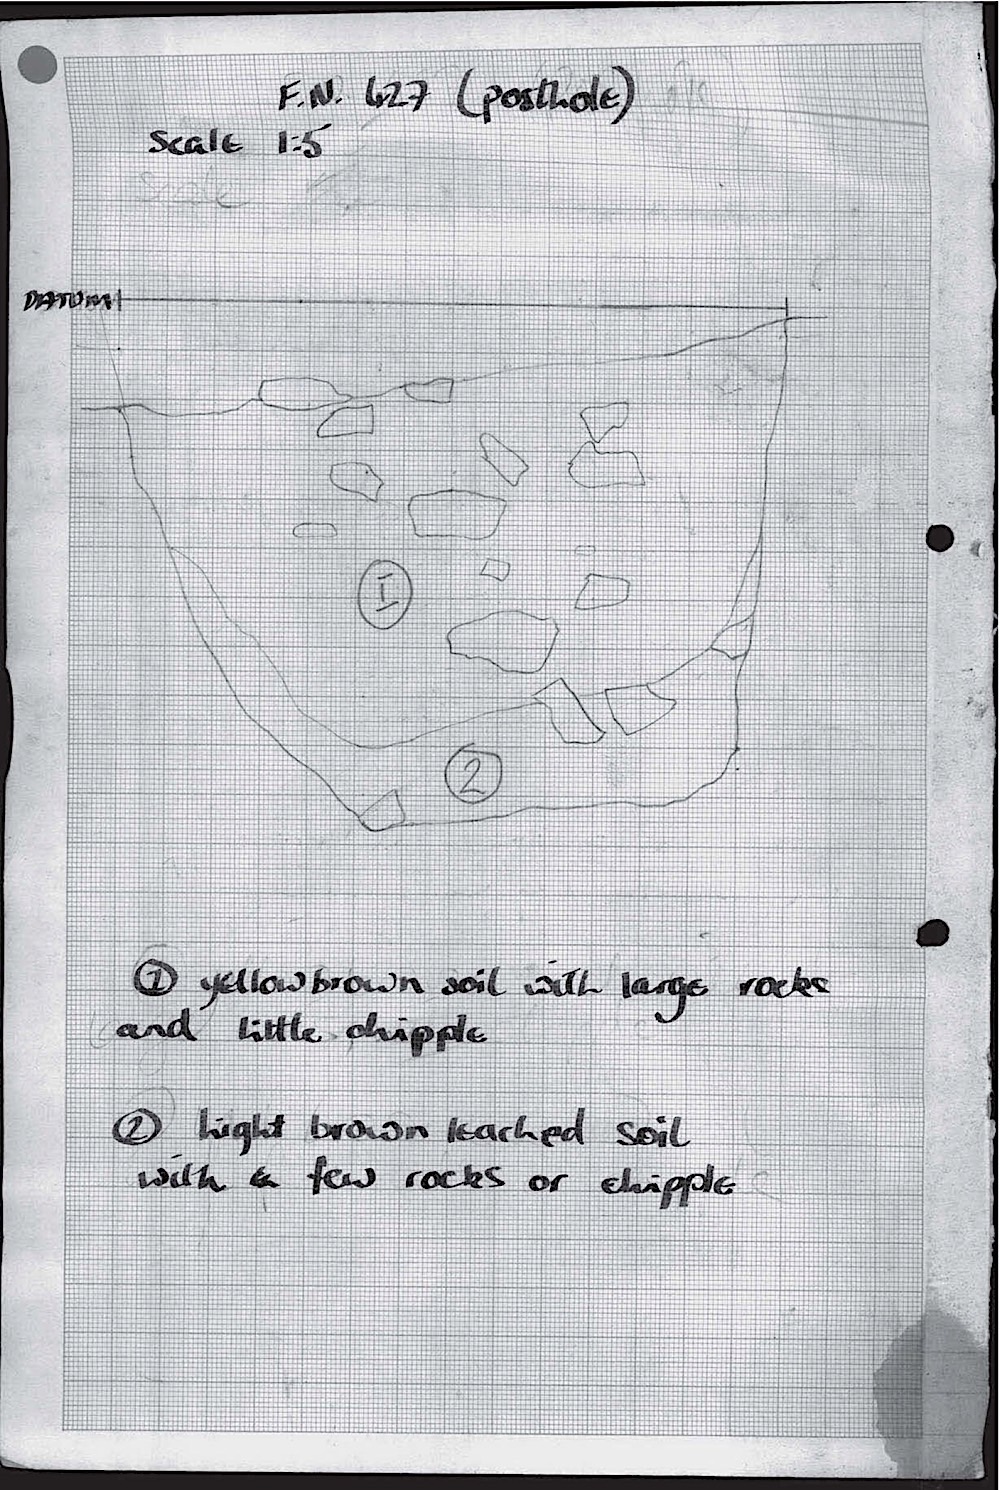 F.N. 627 (posthole)
Scale 1:5
scale
DATUM
1
2
① yellow brown soil with large rocks
and little chipple
② light brown leached soil
with a few rocks or chipple